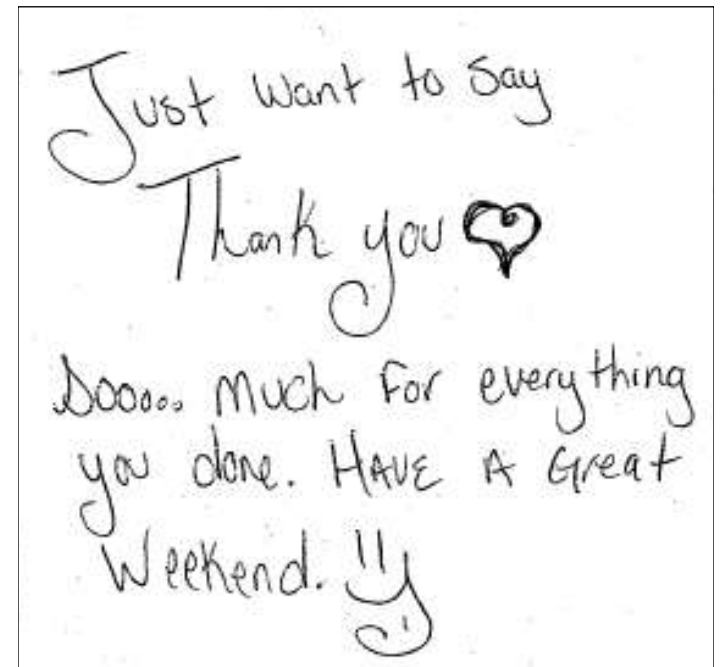 Just want to say
Thank you
Soooo. Much For everything
you done. HAVE A Great
Weekend.